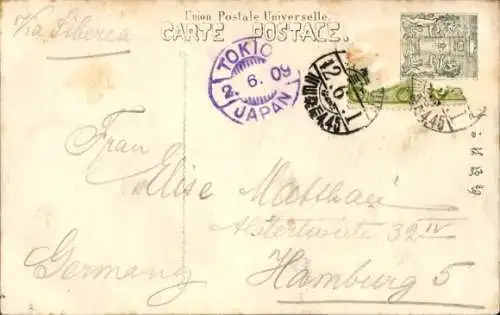 Union Postale Universelle.
CARTE POSTALE.
Via Siberia
TOKIO
2. 6. 09
JAPAN
12.6.1
Frau
Elise Matthaei
Alsterwiete 32 IV
Germany
Hamburg 5